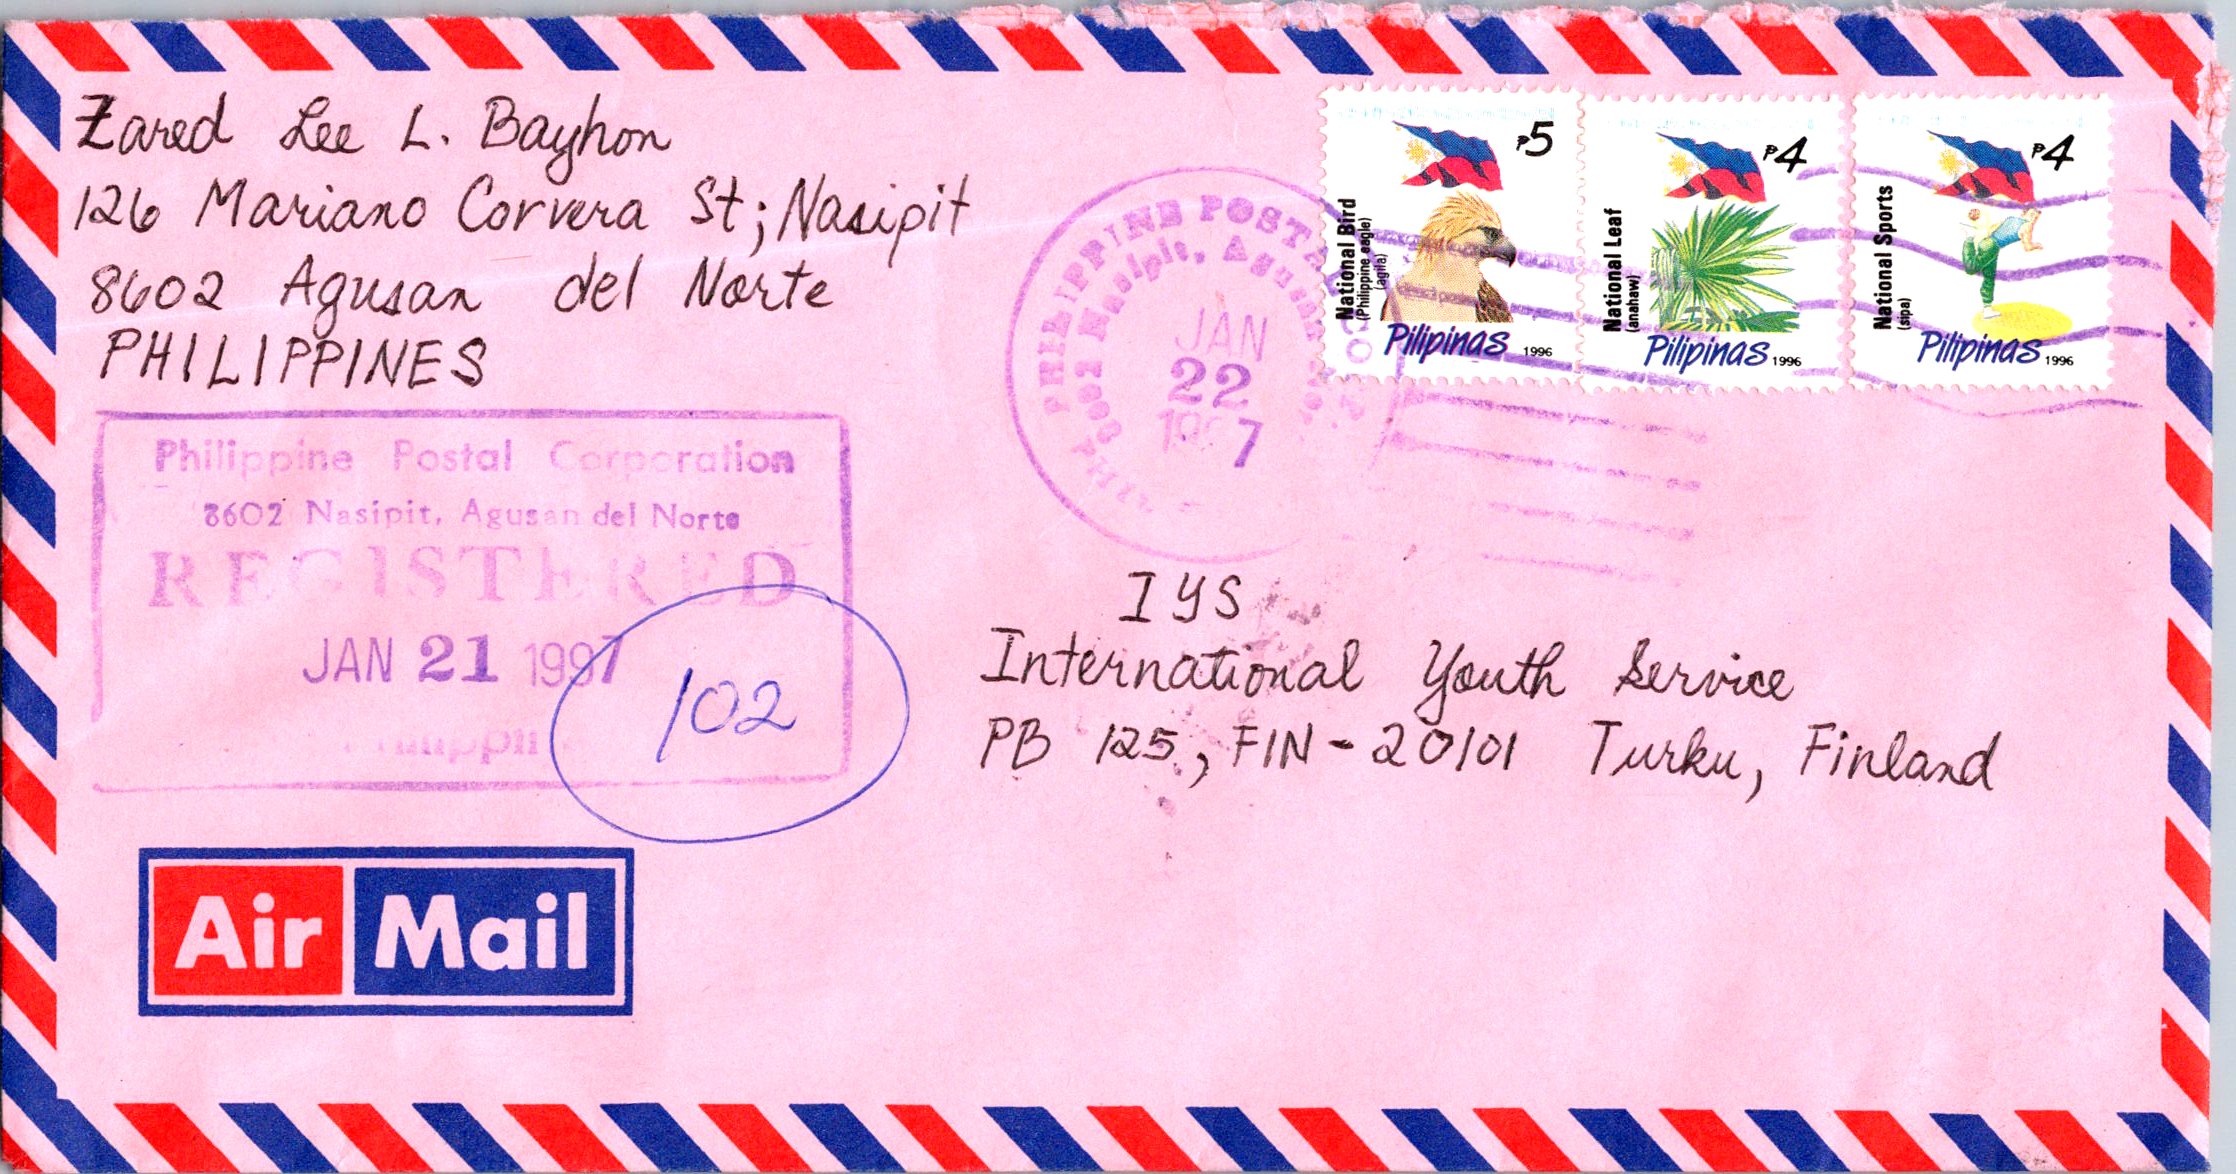 Zared Lee L. Bayhon
126 Mariano Corvera St; Nasipit
8602 Agusan del Norte
PHILIPPINES
₱5
National Bird
(Philippine eagle)
(agila)
Pilipinas 1996
₱4
National Leaf
(anahaw)
Pilipinas 1996
₱4
National Sports
(sipa)
Pilipinas 1996
PHILIPPINE POSTAL
Nasipit, Agusan
JAN
22
Philippine Postal Corporation
8602 Nasipit, Agusan del Norte
REGISTERED
JAN 21 1997
102
IYS
International Youth Service
PB 125, FIN-20101 Turku, Finland
Air Mail